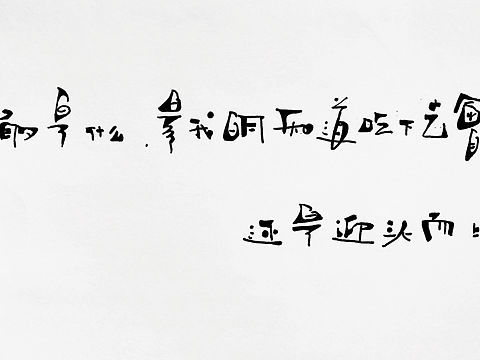 的是什么.是我明知道吃下
还是迎头而